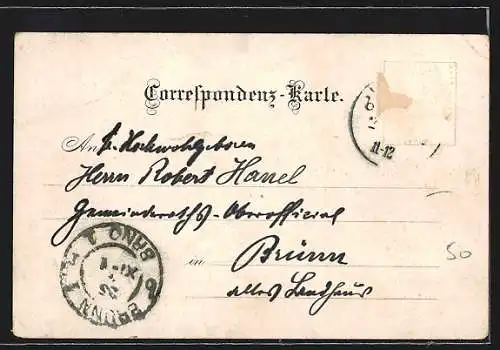 Correspondenz-Karte.
An Sr. Hochwohlgeboren
Herrn Robert Hanel
Gemeinderaths-Oberofficial
in Brünn
altes Landhaus
50
11-12
BRÜNN
BRNO